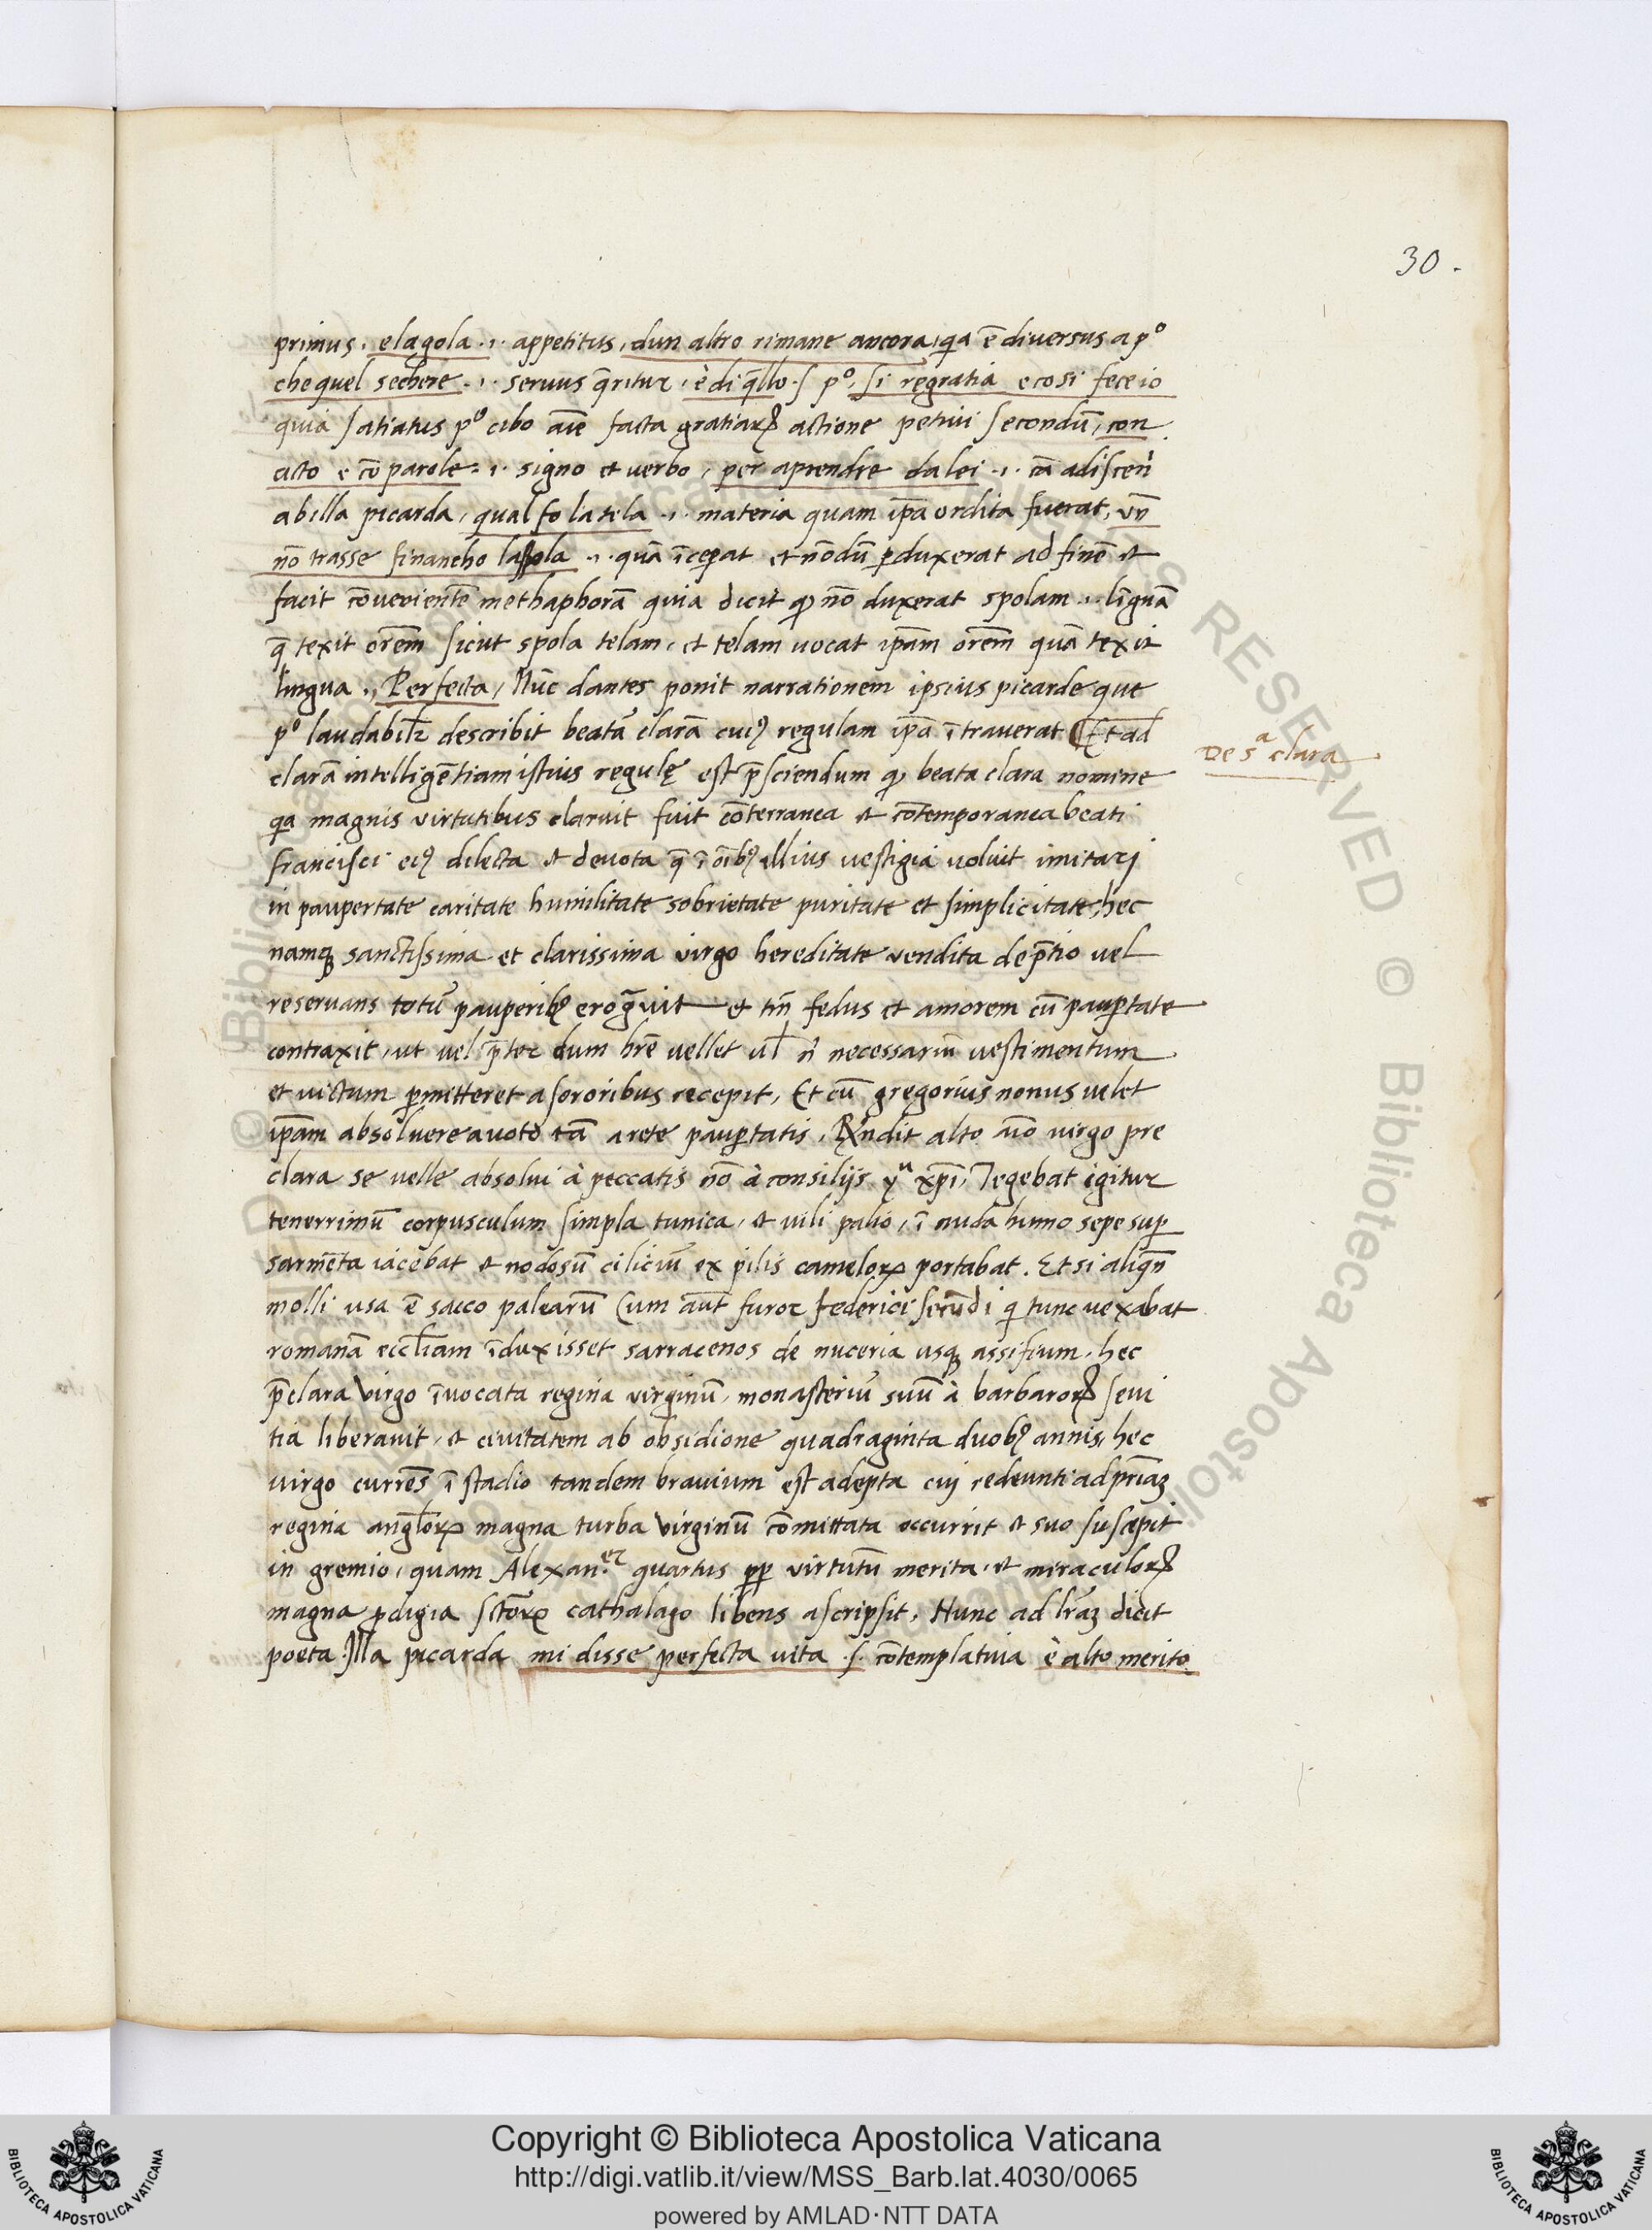 30.
primus, elagola .i. appetitus, dun altro rimane ancora, q̄a ē diuersus a p°
che quel sechere .i. seruus q̄ritur, è di q̄llo .s. p°, si regratia ecosi fece io
quia satiatus p° cibo aīe facta gratiaꝝ actione petiui secondū, con
acto e cō parole .i. signo et verbo, per aprendre da lei .i.
abilla picarda, qual fo la tela .i. materia quam ip̄a ordita fuerat,
nō trasse financho la spola .i. quā īceperat et nōdū ꝑduxerat ad finē et
facit cōuenientē methaphorā quia dicit ꝙ nō duxerat spolam .i. linguā
q̄ texit orēm sicut spola telam, et telam uocat ip̄am orēm quā texit
lingua. Perfecta, Nūc dantes ponit narrationem ipsius picarde que
p° laudabilr̄ describit beatā clarā cuiꝰ regulam ip̄a ītrauerat Et ad
De sᵃ clara
clarā intelligētiam istius regulę est p̄sciendum ꝙ beata clara nomine
q̄a magnis virtutibus claruit fuit cōterranea et cōtemporanea beati
francisci eiꝰ dilecta et deuota q̄ ī oībꝰ illius uestigia uoluit imitari
in paupertate caritate humilitate sobrietate puritate et simplicitate, hec
namqꝫ sanctissima et clarissima virgo hereditate vendita de p̄tio uel
reseruans totū pauperibꝰ erogauit et tm̄ fedus et amorem cū pauꝑtate
contraxit, ut uel p̄ter dum hr̄e uellet ul̄ n̄ necessariū uestimentum
et uictum ꝑmitteret a sororibus recepit, Et cū gregorius nonus uelet
ip̄am absoluere auoto tā arete pauꝑtatis, Rn̄dit alto aīo uirgo pre
clara se uelle absolui à peccatis nō à consilijs xp̄i, Tegebat igitur
tenerrimū corpusculum simpla tunica, et uili palio, ī nuda humo sepe suꝑ
sarmēta iacebat et nodosū ciliciū ex pilis cameloꝝ portabat. Et si aliqn̄
molli usa ē sacco palearū Cum aūt furor federici secūdi q̄ tunc uexabat
romanā eccl̄iam īduxisset sarracenos de nuceria usqꝫ assisium, hec
p̄clara virgo īuocata regina virginū, monasteriū suū à barbaroꝝ seui
tia liberauit, et ciuitatem ab obsidione quadraginta duobꝰ annis, hec
uirgo currēs ī stadio tandem brauium est adepta cuj redeunti ad pr̄iaꝫ
regina angl̄oꝝ magna turba virginū cōmittata occurrit et suo suscepit
in gremio, quam Alexan.ᵉʳ quartus ꝓꝑ virtutū merita, et miraculoꝝ
magna ꝓdigia sctōꝝ cathalago libens ascripsit, Nunc ad lr̄aꝫ dicit
poeta. Illa picarda mi disse perfecta uita .s. cōtemplatiuia è alto merito
Copyright © Biblioteca Apostolica Vaticana
http://digi.vatlib.it/view/MSS_Barb.lat.4030/0065
powered by AMLAD·NTT DATA